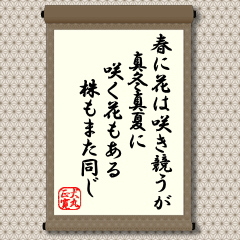 春に花は咲き競うが
真冬真夏に
咲く花もある
株もまた同じ
大丸
正富